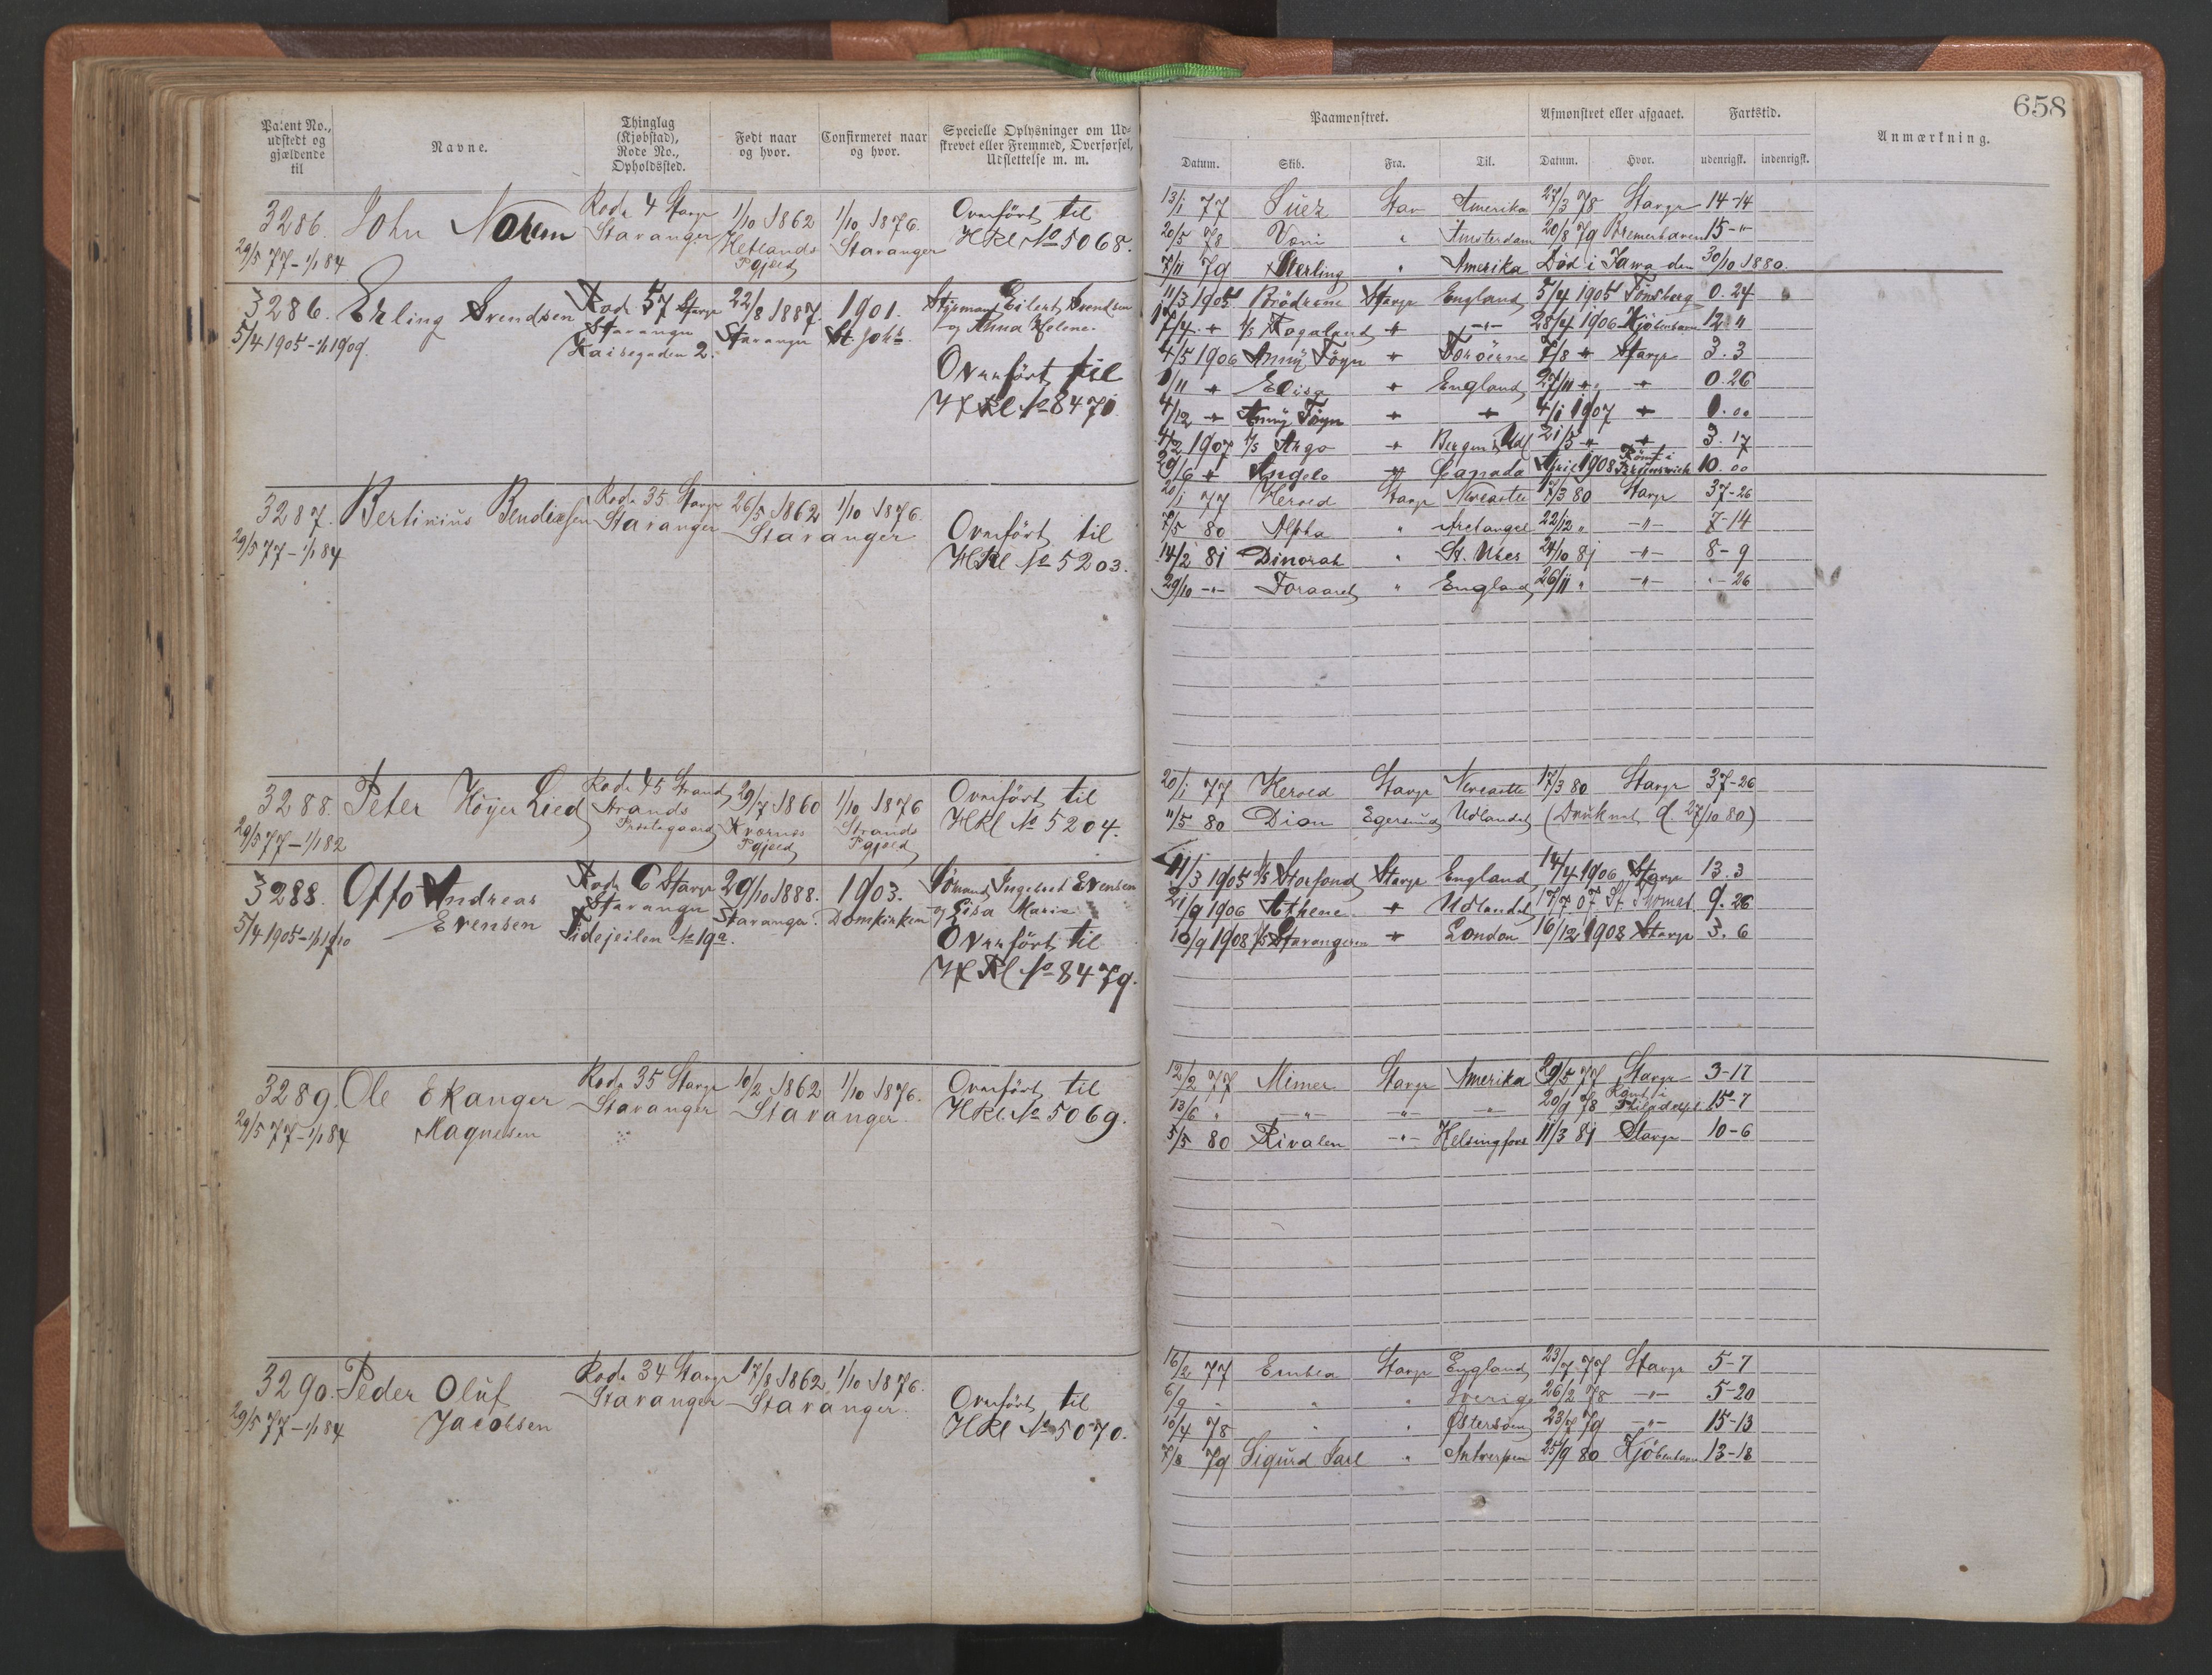 658
Patent No., udstedt og gjældende til
Navne.
Thinglag (Kjøbstad), Rode No., Opholdssted.
Født naar og hvor.
Confirmeret naar og hvor.
Specielle Oplysninger om Udskrevet eller Fremmed, Overførsel, Udslettelse m. m.
Paamønstret.
Afmønstret eller afgaaet.
Fartstid.
Anmærkning.
Datum. Skib. Fra. Til. Datum. Hvor. udenrigsk. indenrigsk.
3286. John Norem Rode 4 Stavgr 1/10 1862 1/10 1876. Overført til
29/5 77 - 1/1 84 Stavanger Hetlands Pgjeld Stavanger HRl No 5068.
13/1 77 Suez Stav Amerika 27/3 78 Stavgr 14-14
20/5 78 " Amsterdam 20/8 79 Bremerhaven 15-"
7/11 79 Sterling " Amerika Død i Java den 30/10 1880.
3286. Erling Svendsen Rode 57 Stavgr 22/8 1887. 1901. Styrmand Eilert Svendsen
5/4 1905 - 1/1 1909. Stavanger Stavanger St. Johs. og Anna Helene.
Kaisegaden 2.
Overført til
HRl No 8471.
11/3 1905 Brødrene Stavgr England 5/4 1905 Tønsberg 0.24
7/4 " D/S Rogaland " " 28/4 1906 Kjøbenhavn 12 "
4/5 1906 Anny Føyn " Færøerne 7/8 " Stavgr 3.3
1/11 " Elisa " England 27/11 " " 0.26
4/12 " Anny Føyn " " 4/1 1907 " 1.00
4/2 1907 D/S Argo " Bergen & Udl 21/5 " " 3.17
29/6 " Angelo " Canada April 1908 Rømt i Brunswick 10.00
3287. Bertinius Bendiksen Rode 35 Stavgr 26/5 1862 1/10 1876.
29/5 77 - 1/1 84 Stavanger Stavanger
Overført til
HRl No 5203.
20/1 77 Herold Stavgr Newcastle 17/3 80 Stavgr 37-26
7/5 80 Alpha " Archangel 22/12 " -"- 7-14
14/2 81 Dinorah " St. Ubes 24/10 81 -"- 8-9
29/10 -"- Foraaret " England 26/11 " -"- "-26
3288. Peter Høyer Lied Rode 45 Strand 29/7 1860 1/10 1876 Overført til
29/5 77 - 1/1 82 Strands Præstegaard Kværnes Pgjeld Strands Pgjeld HRl No 5204.
20/1 77 Herold Stavgr Newcastle 17/3 80 Stavgr 37-26
11/5 80 Dion Egersund Udlandet (Druknet d. 27/10 80)
3288. Otto Andreas Rode 6 Stavgr 29/10 1888. 1903. Sømand Ingebret Evensen
5/4 1905 - 1/1 1910 Evensen Stavanger Stavanger. Domkirken og Lisa Maria
No 19a.
Overført til
HRl No 8479.
11/3 1905 D/S Storfond Stavgr England 14/4 1906 Stavgr 13.3
21/9 1906 Athene " Udlandet 17/7 07 St Thomas 9.26
10/9 1908 D/S Stavangeren " London 16/12 1908 Stavgr 3.6
3289. Ole Ekanger Rode 35 Stavgr 10/2 1862 1/10 1876. Overført til
29/5 77 - 1/1 84 Magnesen Stavanger Stavanger. HRl. No 5069.
12/2 77 Mimer Stavgr Amerika 29/5 77 Stavgr 3-17
13/6 " -"- -"- " 20/9 78 Rømt i Philadelph 15-7
5/5 80 Rivalen -"- Helsingfors 11/3 81 Stavgr 10-6
3290. Peder Oluf Rode 34 Stavgr 17/8 1862 1/10 1876.
29/5 77 - 1/1 84 Jacobsen Stavanger Stavanger.
Overført til
HRl No 5070.
16/2 77 Embla Stavgr England 23/7 77 Stavgr 5-7
6/9 " " " Sverige 26/2 78 -"- 5-20
10/4 78 " " Østersøen 23/7 79 -"- 15-13
7/8 79 Sigurd Jarl " Antwerpen 25/9 80 Kjøbenhavn 13-18